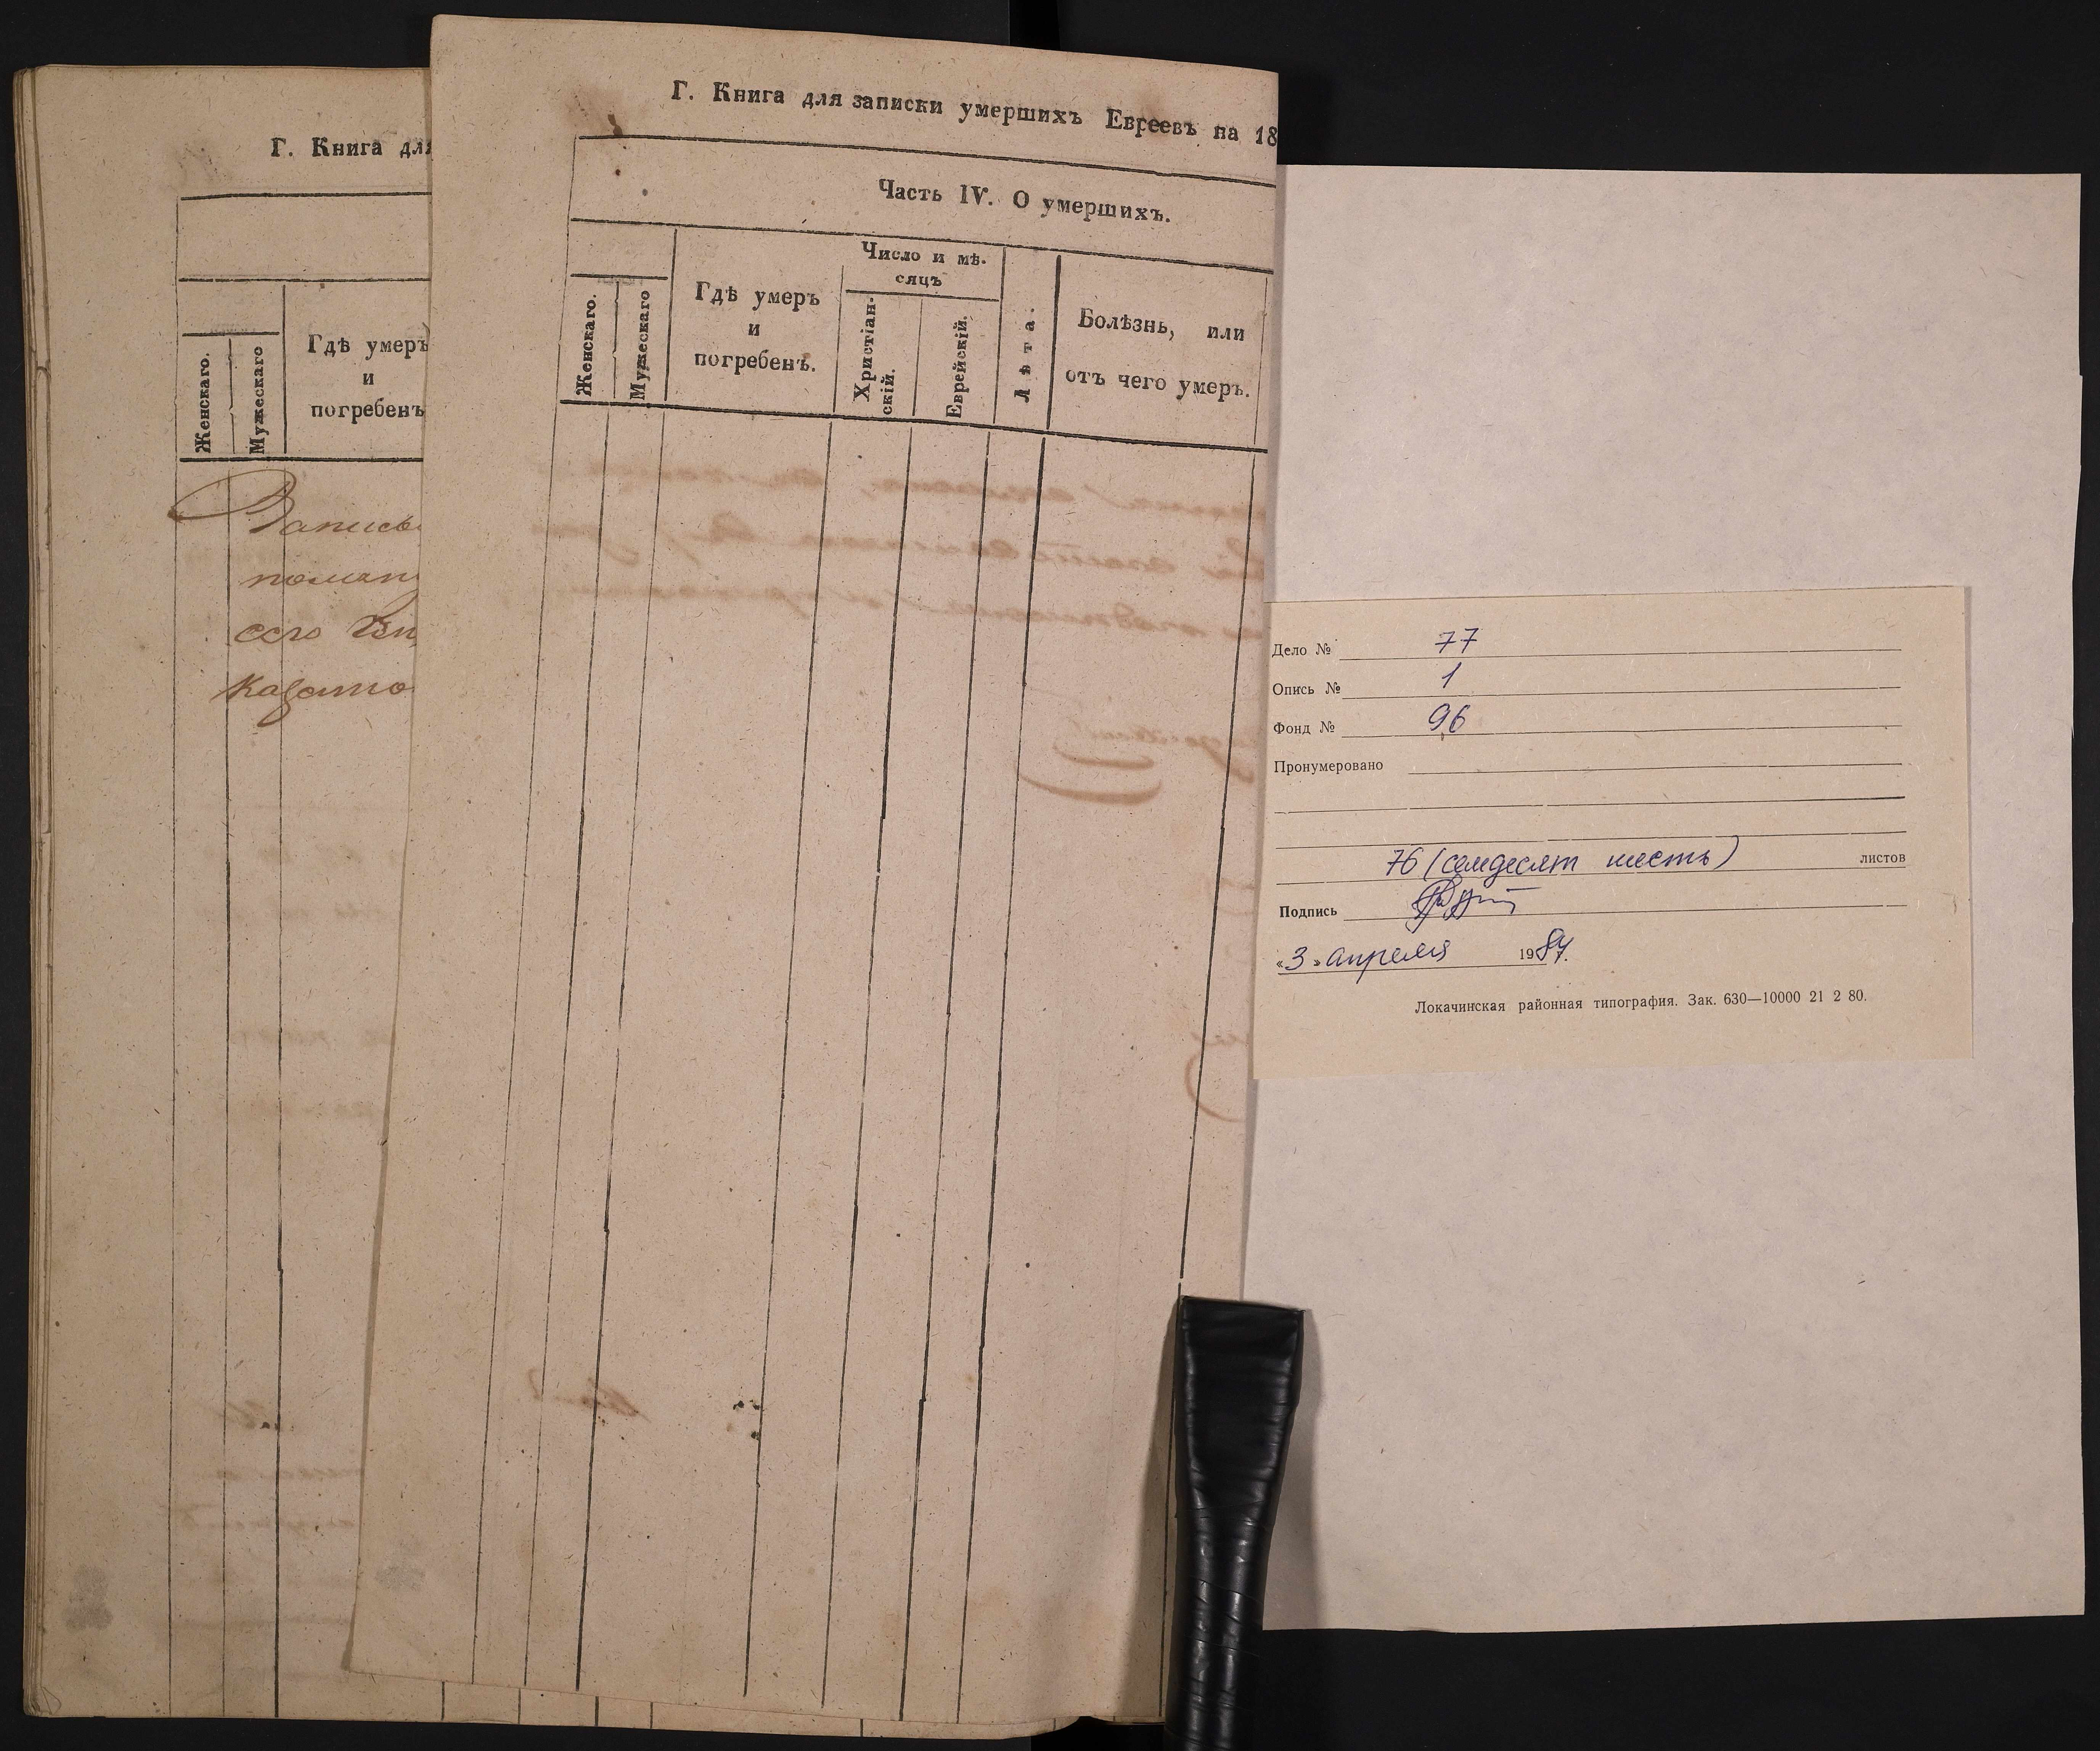 Г. Книга для
Женскаго.
Мужескаго
Гдѣ умеръ
и
погребенъ
Записы
ссго
Г. Книга для записки умершихъ Евреевъ на 18
Часть IV. О умершихъ.
Женскаго.
Мужескаго
Гдѣ умеръ
и
погребенъ.
Число и мѣ-
сяцъ
Христіан-
скій.
Еврейскій.
Лѣта.
Болѣзнь, или
отъ чего умеръ.
Дело № 77
Опись № 1
Фонд № 96
Пронумеровано
76 (семдесят шесть) листов
Подпись
«3» апреля 1984.
Локачинская районная типография. Зак. 630—10000 21 2 80.